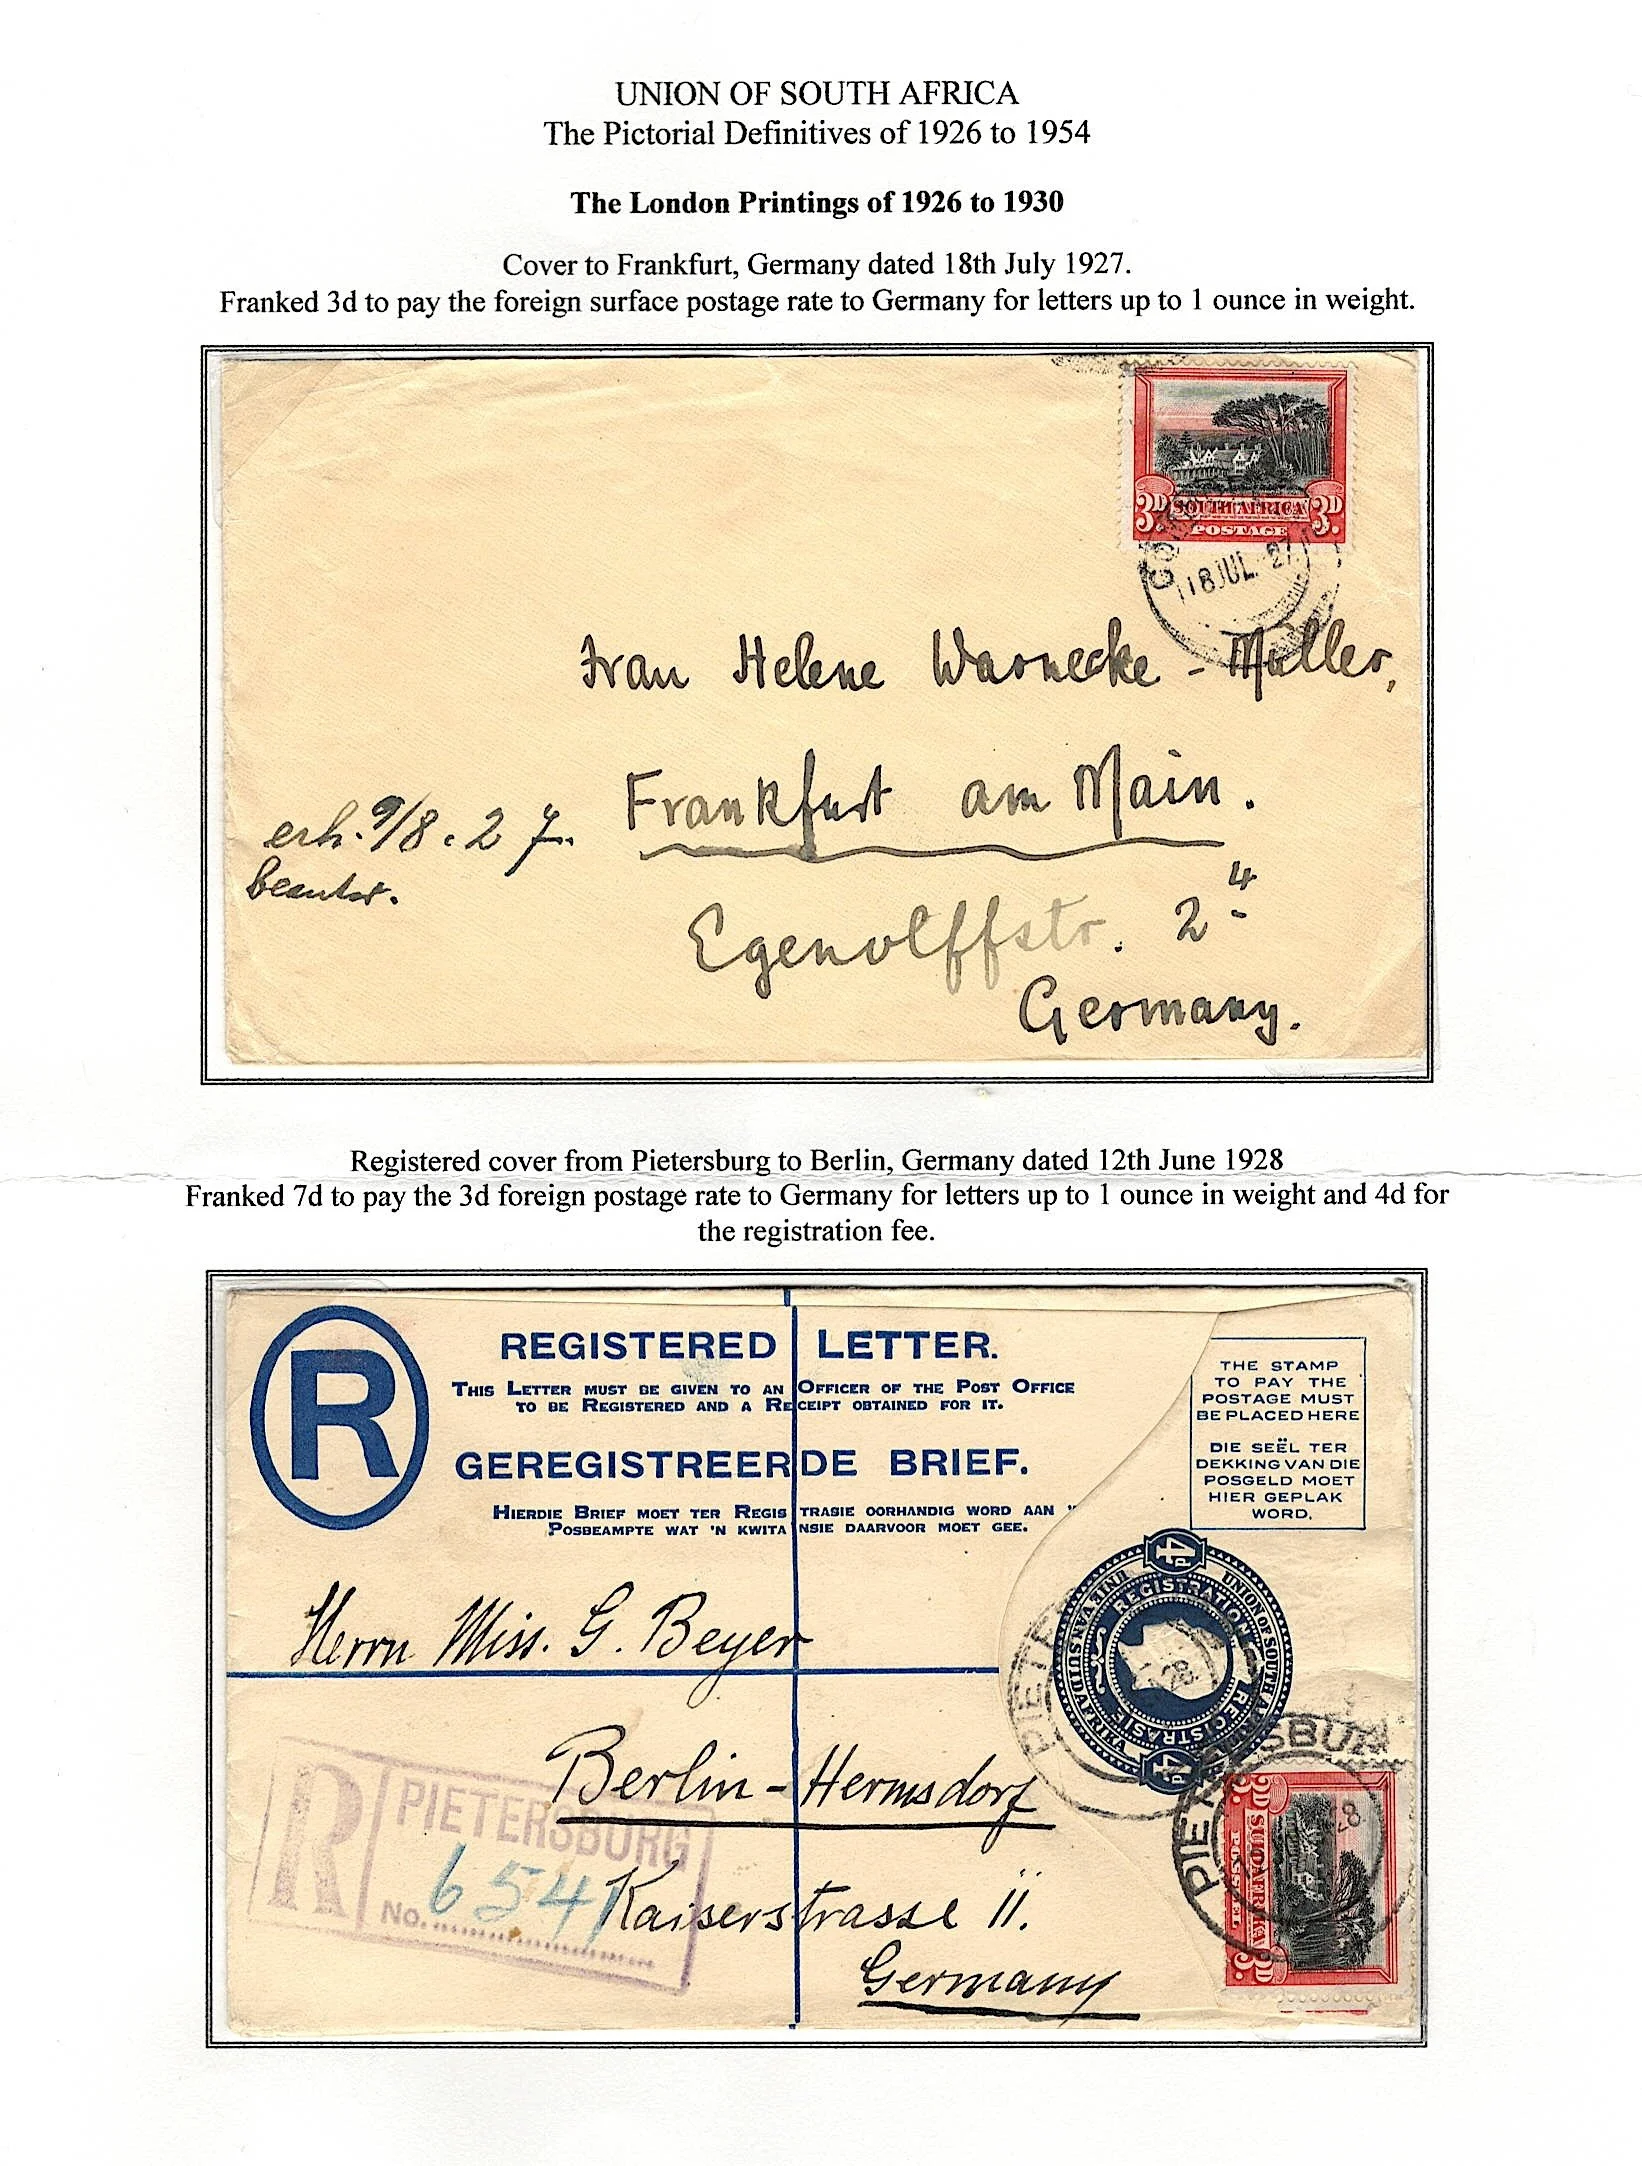 UNION OF SOUTH AFRICA
The Pictorial Definitives of 1926 to 1954
The London Printings of 1926 to 1930
Cover to Frankfurt, Germany dated 18th July 1927.
Franked 3d to pay the foreign surface postage rate to Germany for letters up to 1 ounce in weight.
3D SOUTH AFRICA 3D
POSTAGE
18 JUL. 27
Frau Helene Warnecke - Müller,
Frankfurt am Main.
erh. 9/8.27.
beantw.
Egenolffstr. 2 4
Germany.
Registered cover from Pietersburg to Berlin, Germany dated 12th June 1928
Franked 7d to pay the 3d foreign postage rate to Germany for letters up to 1 ounce in weight and 4d for
the registration fee.
R
REGISTERED LETTER.
THIS LETTER MUST BE GIVEN TO AN OFFICER OF THE POST OFFICE
TO BE REGISTERED AND A RECEIPT OBTAINED FOR IT.
GEREGISTREERDE BRIEF.
HIERDIE BRIEF MOET TER REGISTRASIE OORHANDIG WORD AAN '
POSBEAMPTE WAT 'N KWITANSIE DAARVOOR MOET GEE.
THE STAMP
TO PAY THE
POSTAGE MUST
BE PLACED HERE
DIE SEËL TER
DEKKING VAN DIE
POSGELD MOET
HIER GEPLAK
WORD.
4D
UNIE VAN SUID AFRIKA
UNION OF SOUTH AFRICA
REGISTRATION
REGISTRASIE
4D
Herrn Miss. G. Beyer
Berlin-Hermsdorf
R PIETERSBURG
No. 6541
Kaiserstrasse 11.
Germany
PIETERSBURG
28
3D SUIDAFRIKA 3D
POSSEEL